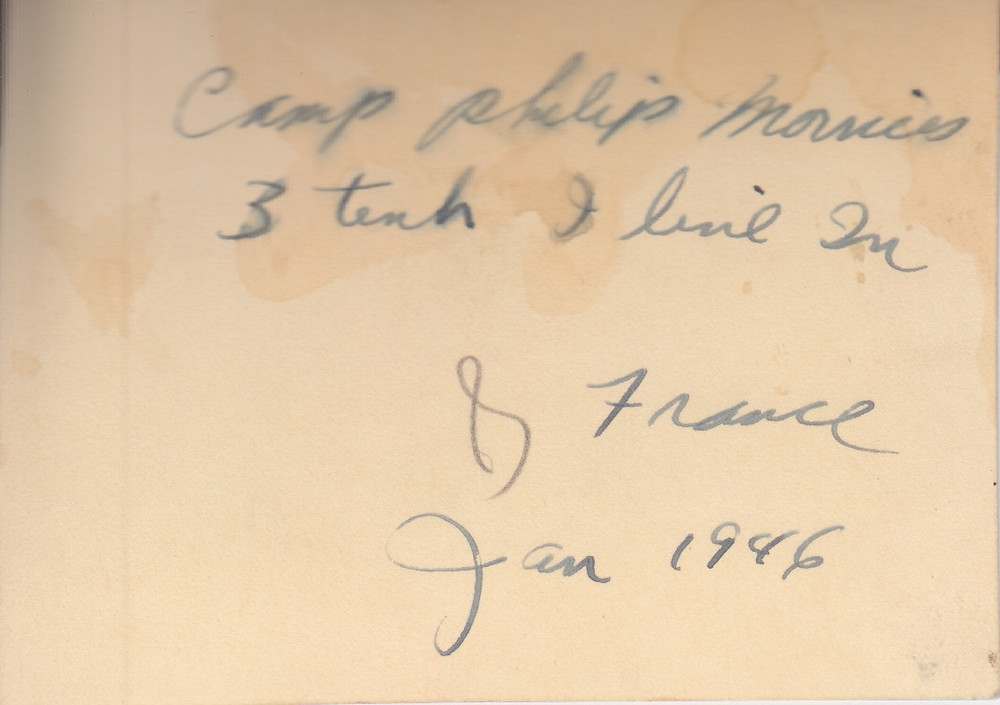 Camp philip Morries
3 tenh I live In
France
Jan 1946